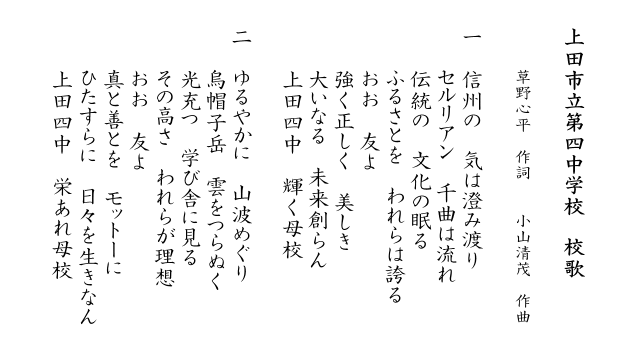 上田市立第四中学校　校歌
草野心平　作詞　　小山清茂　作曲
一
信州の　気は澄み渡り
セルリアン　千曲は流れ
伝統の　文化の眠る
ふるさとを　われらは誇る
おお　友よ
強く正しく　美しき
大いなる　未来創らん
上田四中　輝く母校
二
ゆるやかに　山波めぐり
烏帽子岳　雲をつらぬく
光充つ　学び舎に見る
その高さ　われらが理想
おお　友よ
真と善とを　モットーに
ひたすらに　日々を生きなん
上田四中　栄あれ母校